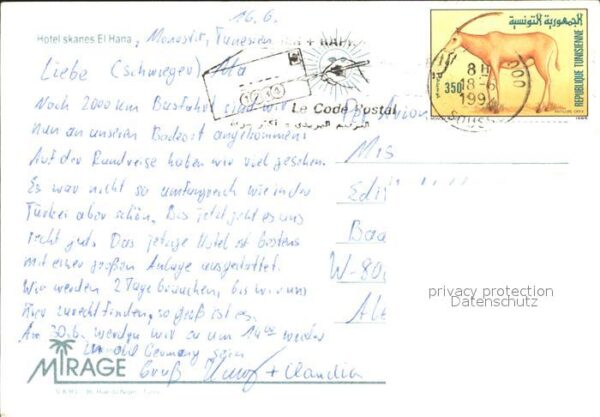 16.6.
Hotel skanes El Hana, Monastir, Tunesien
Liebe (Schwieger) Ma
Nach 2000 km Busfahrt sind wir
nun an unserem Badeort angekommen.
Auf der Rundreise haben wir viel gesehen.
Es war nicht so umfangreich wie in der
Türkei aber schön. Bis jetzt geht es uns
recht gut. Das jetzige Hotel ist bestens
mit einer großen Anlage ausgestattet.
Wir werden 2 Tage brauchen, bis wir uns
hier zurechtfinden, so groß ist es.
Am 30.6. werden wir so um 14 00 wieder
in old Germany sein
Gruß + Claudia
MIRAGE
Le Code Postal
par Avion
Mis
Edi
Baa
W-80
Alt
الجمهورية التونسية
REPUBLIQUE TUNISIENNE
350
18-6
privacy protection
Datenschutz